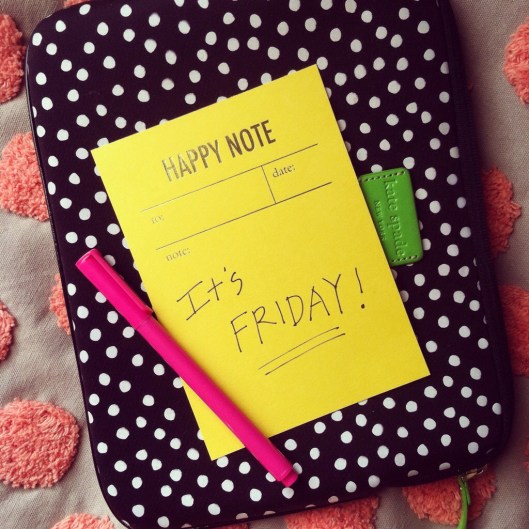 HAPPY NOTE
to:
date:
note:
It's
FRIDAY!
kate spade
NEW YORK